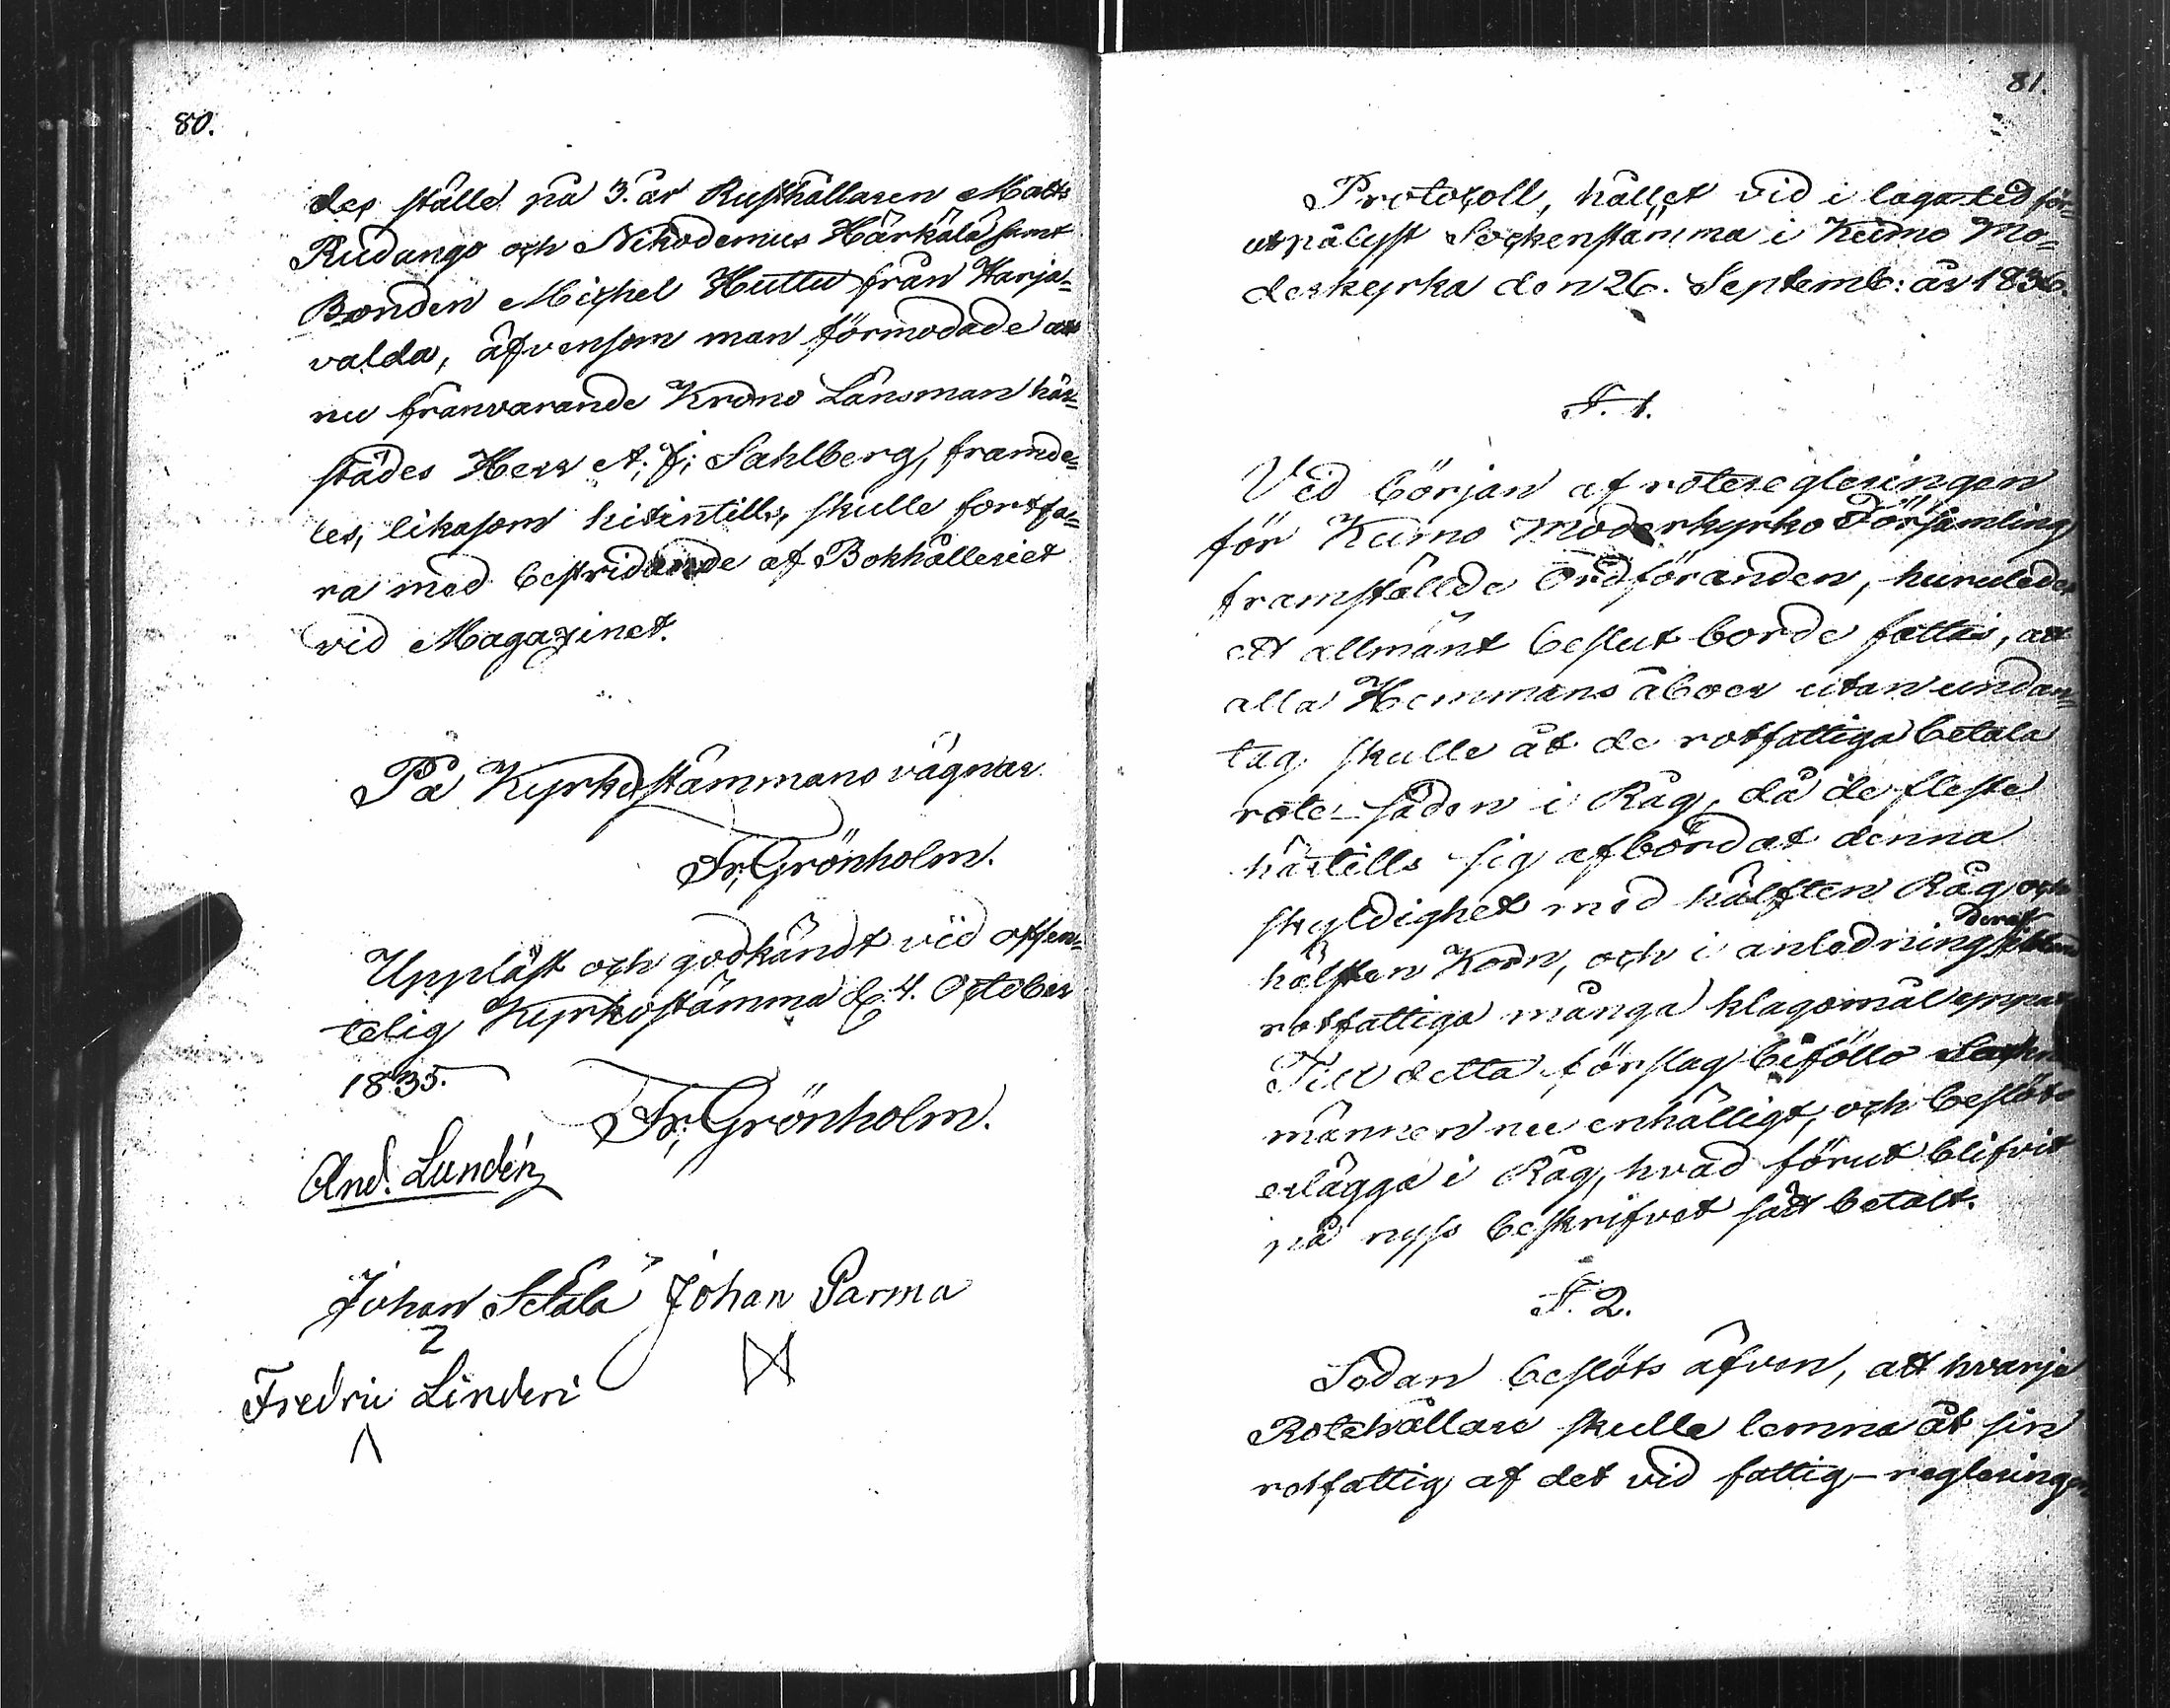 80.
des ställe på 3. år Rusthållaren Matts
Rudango och Nikodemus Härkälä samt
Bonden Michel Huttu från Harja-
valda, äfvensom man förmodade att
nu frånvarande Krono Länsman här-
städes Herr A. J. Sahlberg, framde-
les, likasom hitintills, skulle fortfa-
ra med bestridande af Bokhålleriet
vid Magazinet.
På Kyrkostämmans vägnar
Fr. Grönholm.
Uppläst och godkändt vid offen-
telig Kyrkostämma d. 4. October
1835.
Fr. Grönholm.
And. Lundén
Johan Setälä Johan Parma
Fredric Linderi
81.
Protocoll, hållet vid i laga tid för-
utpålyst Sockenstämma i Kumo Mo-
derkyrka den 26. Septemb: år 1836.
§. 1.
Vid början af roteregleringen
för Kumo Moderkyrko Församling
framställde Ordföranden, huruledes
ett allmänt beslut borde fattas, att
alla Hemmans åboer utan undan-
tag skulle åt de rotfattiga betala
rote-säden i Råg, då de fleste
härtills sig afbördat denna
skyldighet med hälften Råg och
hälften Korn, och i anledning deraf
rotfattiga många klagomål
Till detta förslag biföllo Socken
männen nu enhälligt, och beslöts
erlägga i Råg, hvad förut blifvit
på nyss beskrifvet sätt betalt.
§. 2.
Sedan beslöts äfven, att hvarje
Rotehållare skulle lemna åt sin
rotfattig af det vid fattig-regleringen